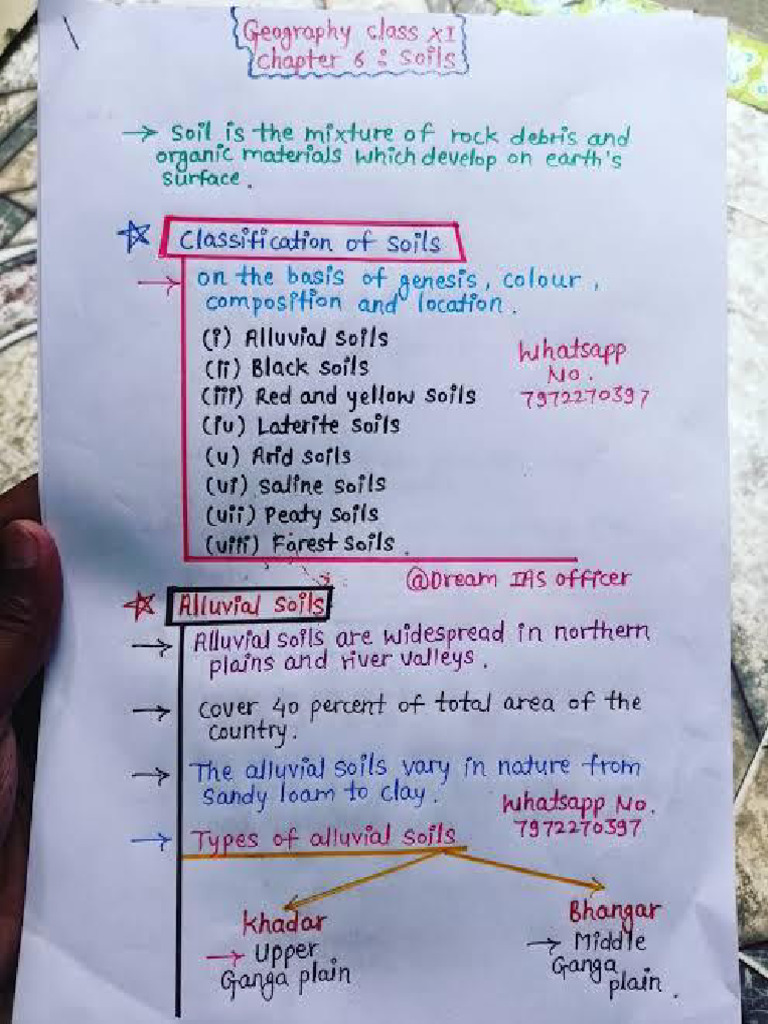 Geography class XI
chapter 6 : Soils
→ Soil is the mixture of rock debris and
organic materials which develop on earth's
surface.
☆ Classification of Soils
→ on the basis of genesis, colour,
composition and location.
(i) Alluvial soils
(ii) Black soils
(iii) Red and yellow soils
(iv) Laterite soils
(v) Arid soils
(vi) saline soils
(vii) Peaty soils
(viii) Forest soils.
Whatsapp
No.
7972270397
@Dream IAS officer
☆ Alluvial soils
→ Alluvial soils are widespread in northern
plains and river valleys.
→ cover 40 percent of total area of the
country.
→ The alluvial soils vary in nature from
sandy loam to clay.
Whatsapp No.
7972270397
→ Types of alluvial soils
Khadar
→ Upper
Ganga plain
Bhangar
→ Middle
Ganga
plain.